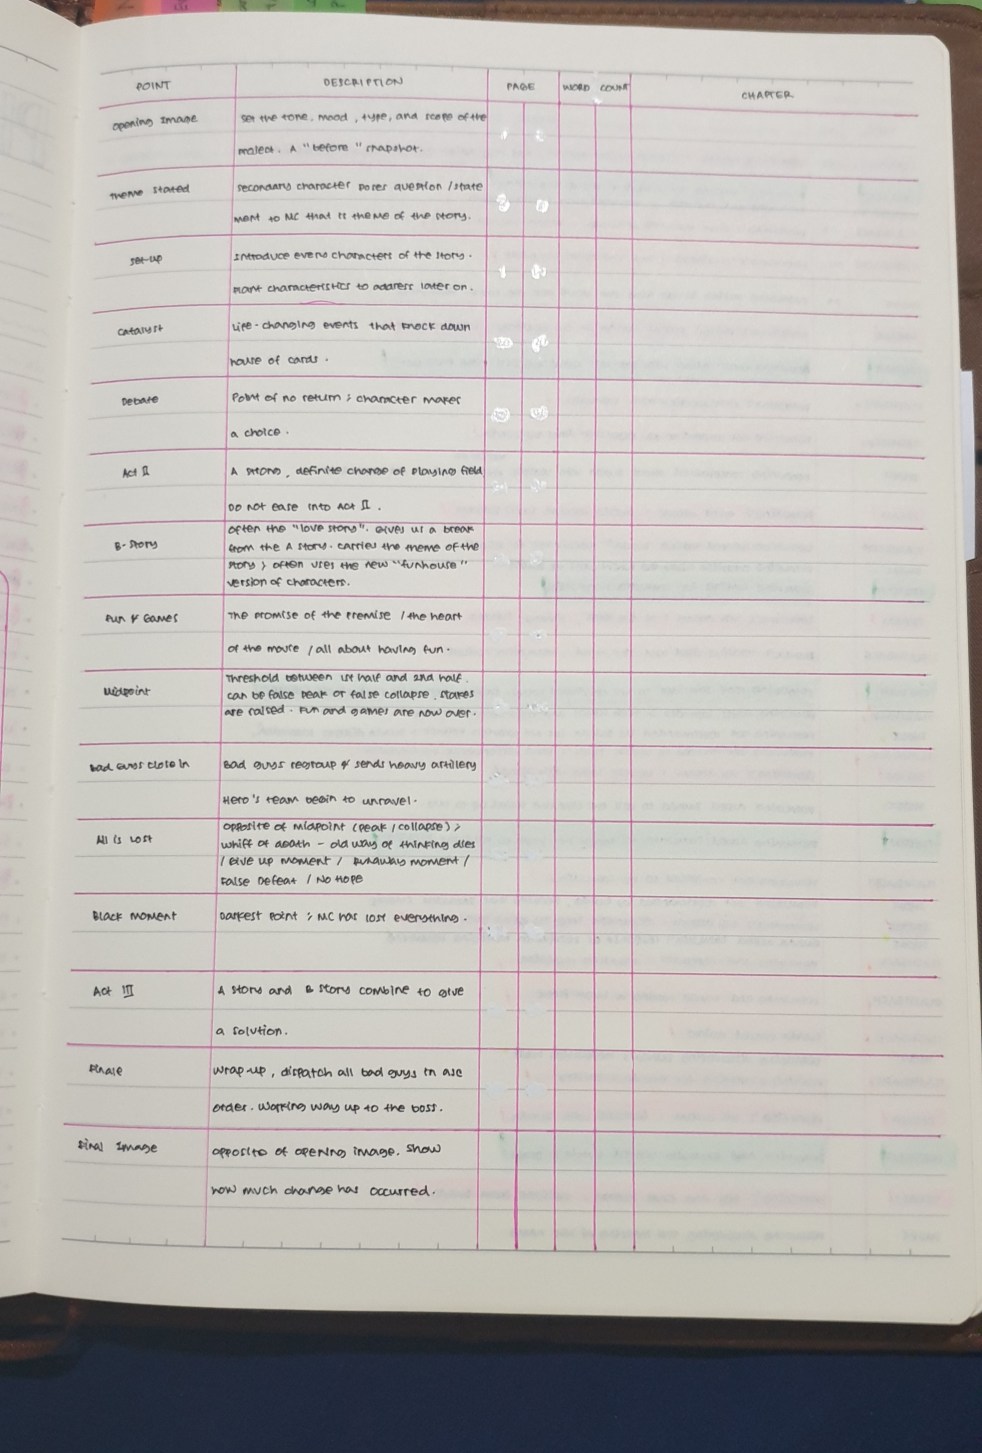 POINT DESCRIPTION PAGE WORD COUNT CHAPTER
Opening Image Set the tone, mood, type, and scope of the
project. A "before" snapshot.
Theme Stated Secondary character poses question / state
ment to MC that is theme of the story.
Set-up Introduce every characters of the story.
Plant characteristics to address later on.
Catalyst Life-changing events that knock down
house of cards.
Debate Point of no return; character makes
a choice.
Act II A strong, definite change of playing field
Do not ease into Act II.
B-Story Often the "love story". Gives us a break
from the A story. Carries the theme of the
story; often uses the new "funhouse"
version of characters.
Fun & Games The promise of the premise / the heart
of the movie / all about having fun.
Midpoint Threshold between 1st half and 2nd half.
can be false peak or false collapse. Stakes
are raised. Fun and games are now over.
Bad Guys Close In Bad guys regroup & sends heavy artillery
Hero's team begin to unravel.
All is Lost Opposite of midpoint (peak / collapse);
whiff of death - old way of thinking dies
/ Give up moment / Runaway moment /
False Defeat / No Hope
Black Moment Darkest point; MC has lost everything.
Act III A story and B story combine to give
a solution.
Finale Wrap-up, dispatch all bad guys in asc
order. Working way up to the boss.
Final Image Opposite of opening image. Show
how much change has occurred.